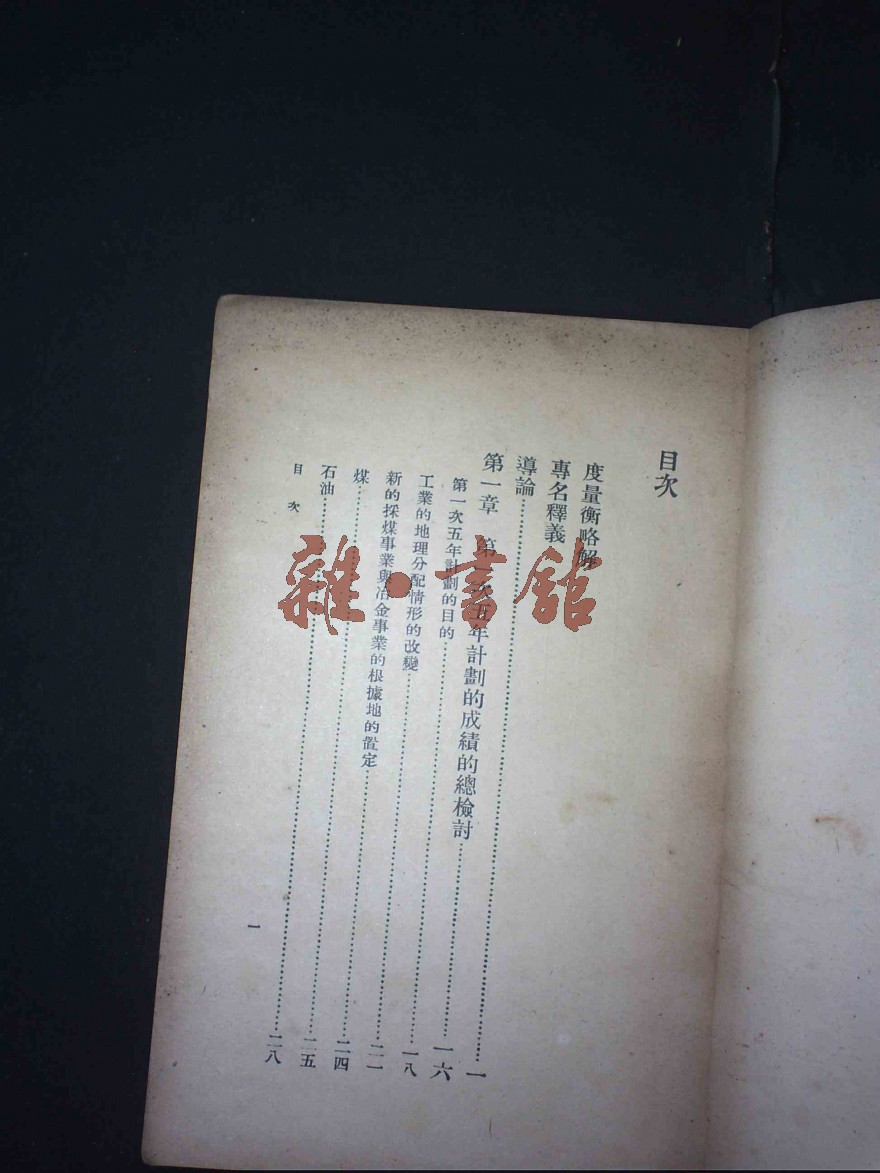 目次
度量衡略解
專名釋義
導論……一
第一章　第一次五年計劃的成績的總檢討……一六
第一次五年計劃的目的……一八
工業的地理分配情形的改變……二一
新的採煤事業與冶金事業的根據地的置定……二四
煤……二五
石油……二八
目次
一
雜·書館